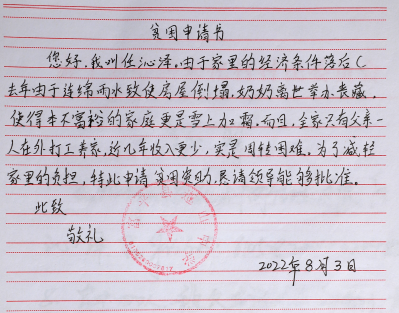 贫困申请书
您好，我叫任沁泽，由于家里的经济条件落后（
去年由于连绵雨水致使房屋倒塌，奶奶离世举办丧葬，
使得本不富裕的家庭更是雪上加霜。而且，全家只有父亲一
人在外打工养家，近几年收入更少，实是周转困难。为了减轻
家里的负担，特此申请贫困资助，恳请领导能够批准。
此致
敬礼
2022年8月3日